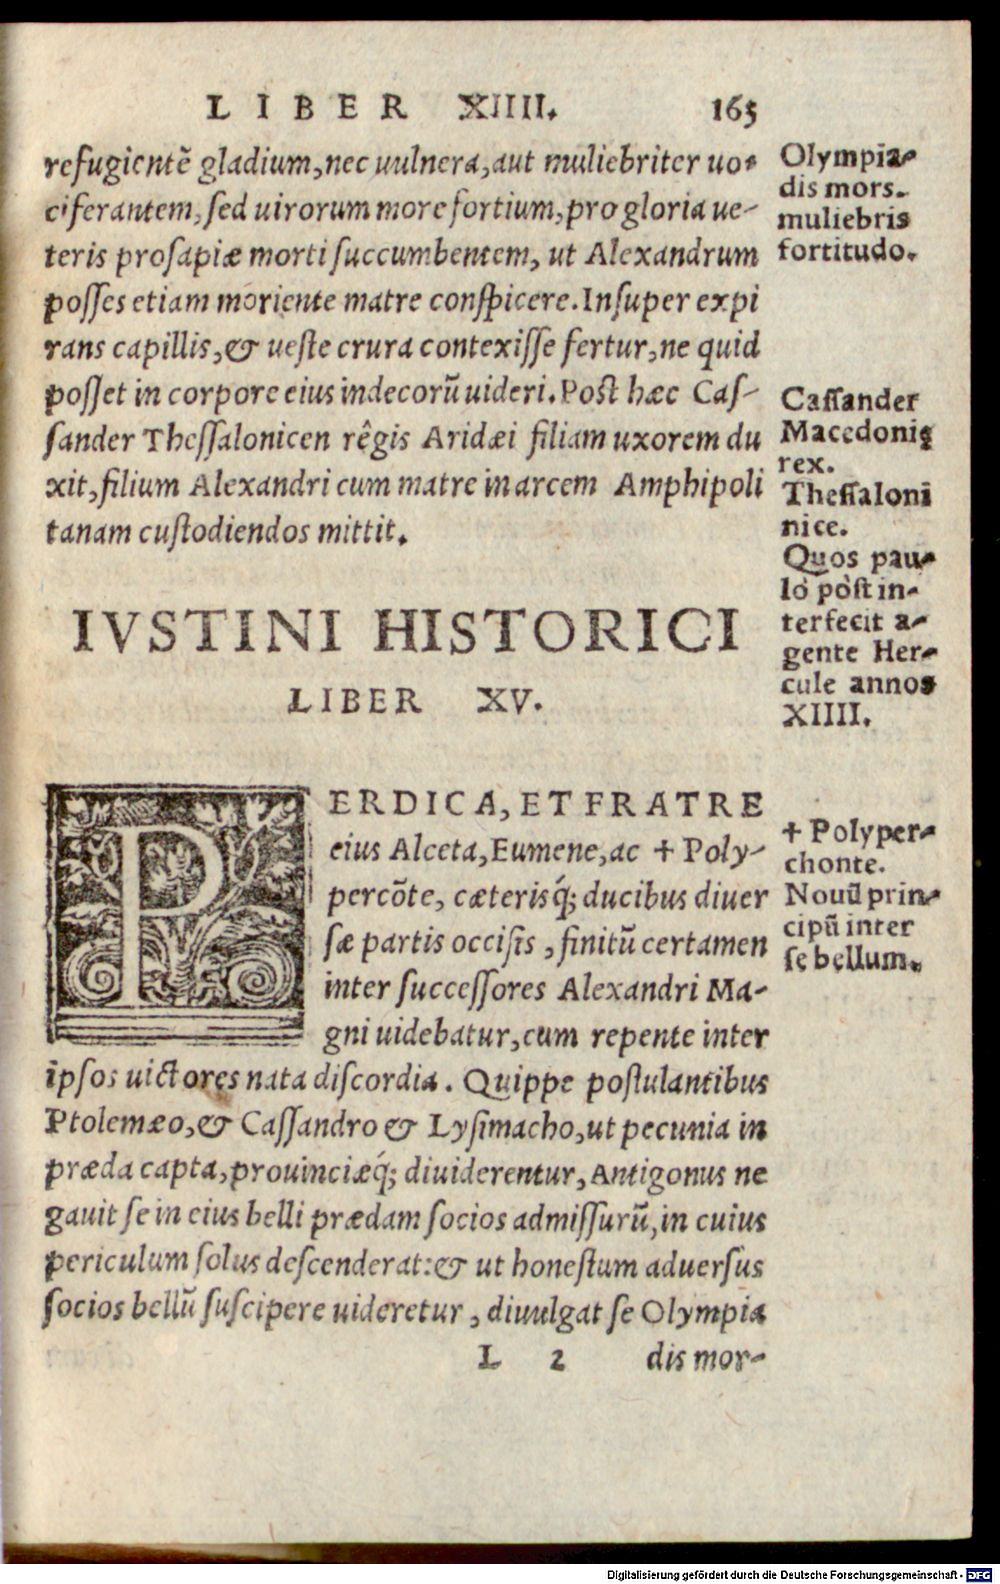 LIBER XIIII. 165
refugientē gladium, nec uulnera, aut muliebriter uo-
ciferantem, sed uirorum more fortium, pro gloria ue-
teris prosapiæ morti succumbentem, ut Alexandrum
posses etiam moriente matre conspicere. Insuper expi
rans capillis, & ueste crura contexisse fertur, ne quid
posset in corpore eius indecorū uideri. Post hæc Cas-
sander Thessalonicen rêgis Aridæi filiam uxorem du
xit, filium Alexandri cum matre in arcem Amphipoli
tanam custodiendos mittit.
Olympia-
dis mors.
muliebris
fortitudo.
Cassander
Macedonię
rex.
Thessaloni
nice.
Quos pau-
lò pòst in-
terfecit a-
gente Her-
cule annos
XIIII.
IVSTINI HISTORICI
LIBER XV.
PERDICA, ET FRATRE
eius Alceta, Eumene, ac + Poly-
percōte, cæterisq́; ducibus diuer
sæ partis occisis, finitū certamen
inter successores Alexandri Ma-
gni uidebatur, cum repente inter
ipsos uictores nata discordia. Quippe postulantibus
Ptolemæo, & Cassandro & Lysimacho, ut pecunia in
præda capta, prouinciæq́; diuiderentur, Antigonus ne
gauit se in eius belli prædam socios admissurū, in cuius
periculum solus descenderat: & ut honestum aduersus
socios bellū suscipere uideretur, diuulgat se Olympia
+ Polyper-
chonte.
Nouū prin-
cipū inter
se bellum.
L 2 dis mor-
Digitalisierung gefördert durch die Deutsche Forschungsgemeinschaft - DFG